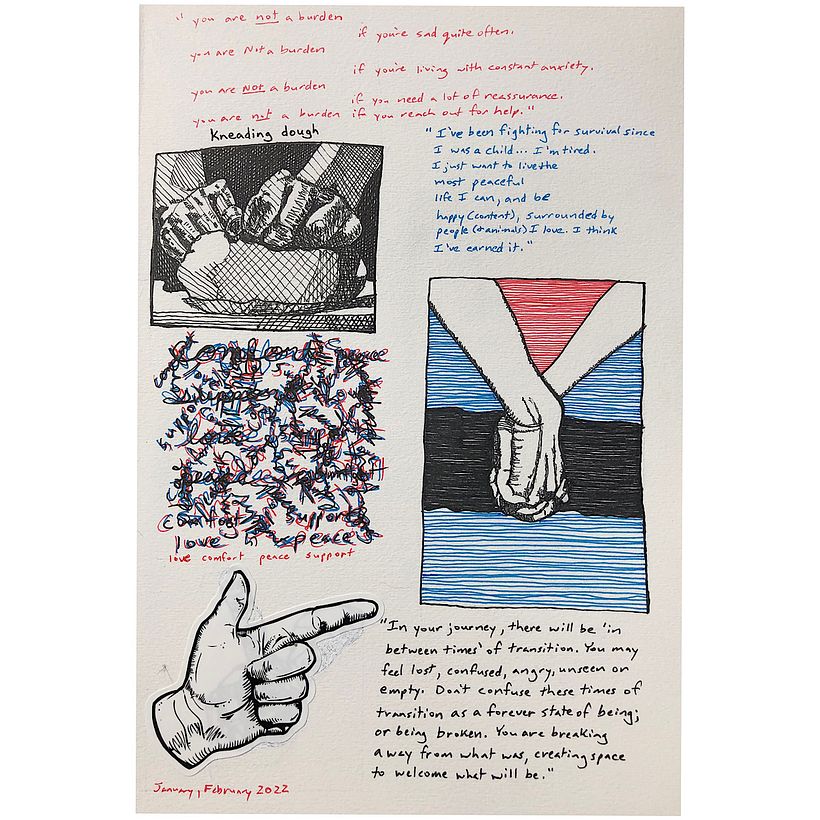 "you are not a burden
if you're sad quite often.
you are Not a burden
if you're living with constant anxiety.
you are Not a burden
if you need a lot of reassurance.
you are not a burden if you reach out for help."
Kneading dough
"I've been fighting for survival since
I was a child... I'm tired.
I just want to live the
most peaceful
life I can, and be
happy (content), surrounded by
people (& animals) I love. I think
I've earned it."
comfort peace
support
love support
peace comfort
comfort support
love peace
love comfort peace support
"In your journey, there will be 'in
between times' of transition. You may
feel lost, confused, angry, unseen or
empty. Don't confuse these times of
transition as a forever state of being;
or being broken. You are breaking
away from what was, creating space
to welcome what will be."
January, February 2022